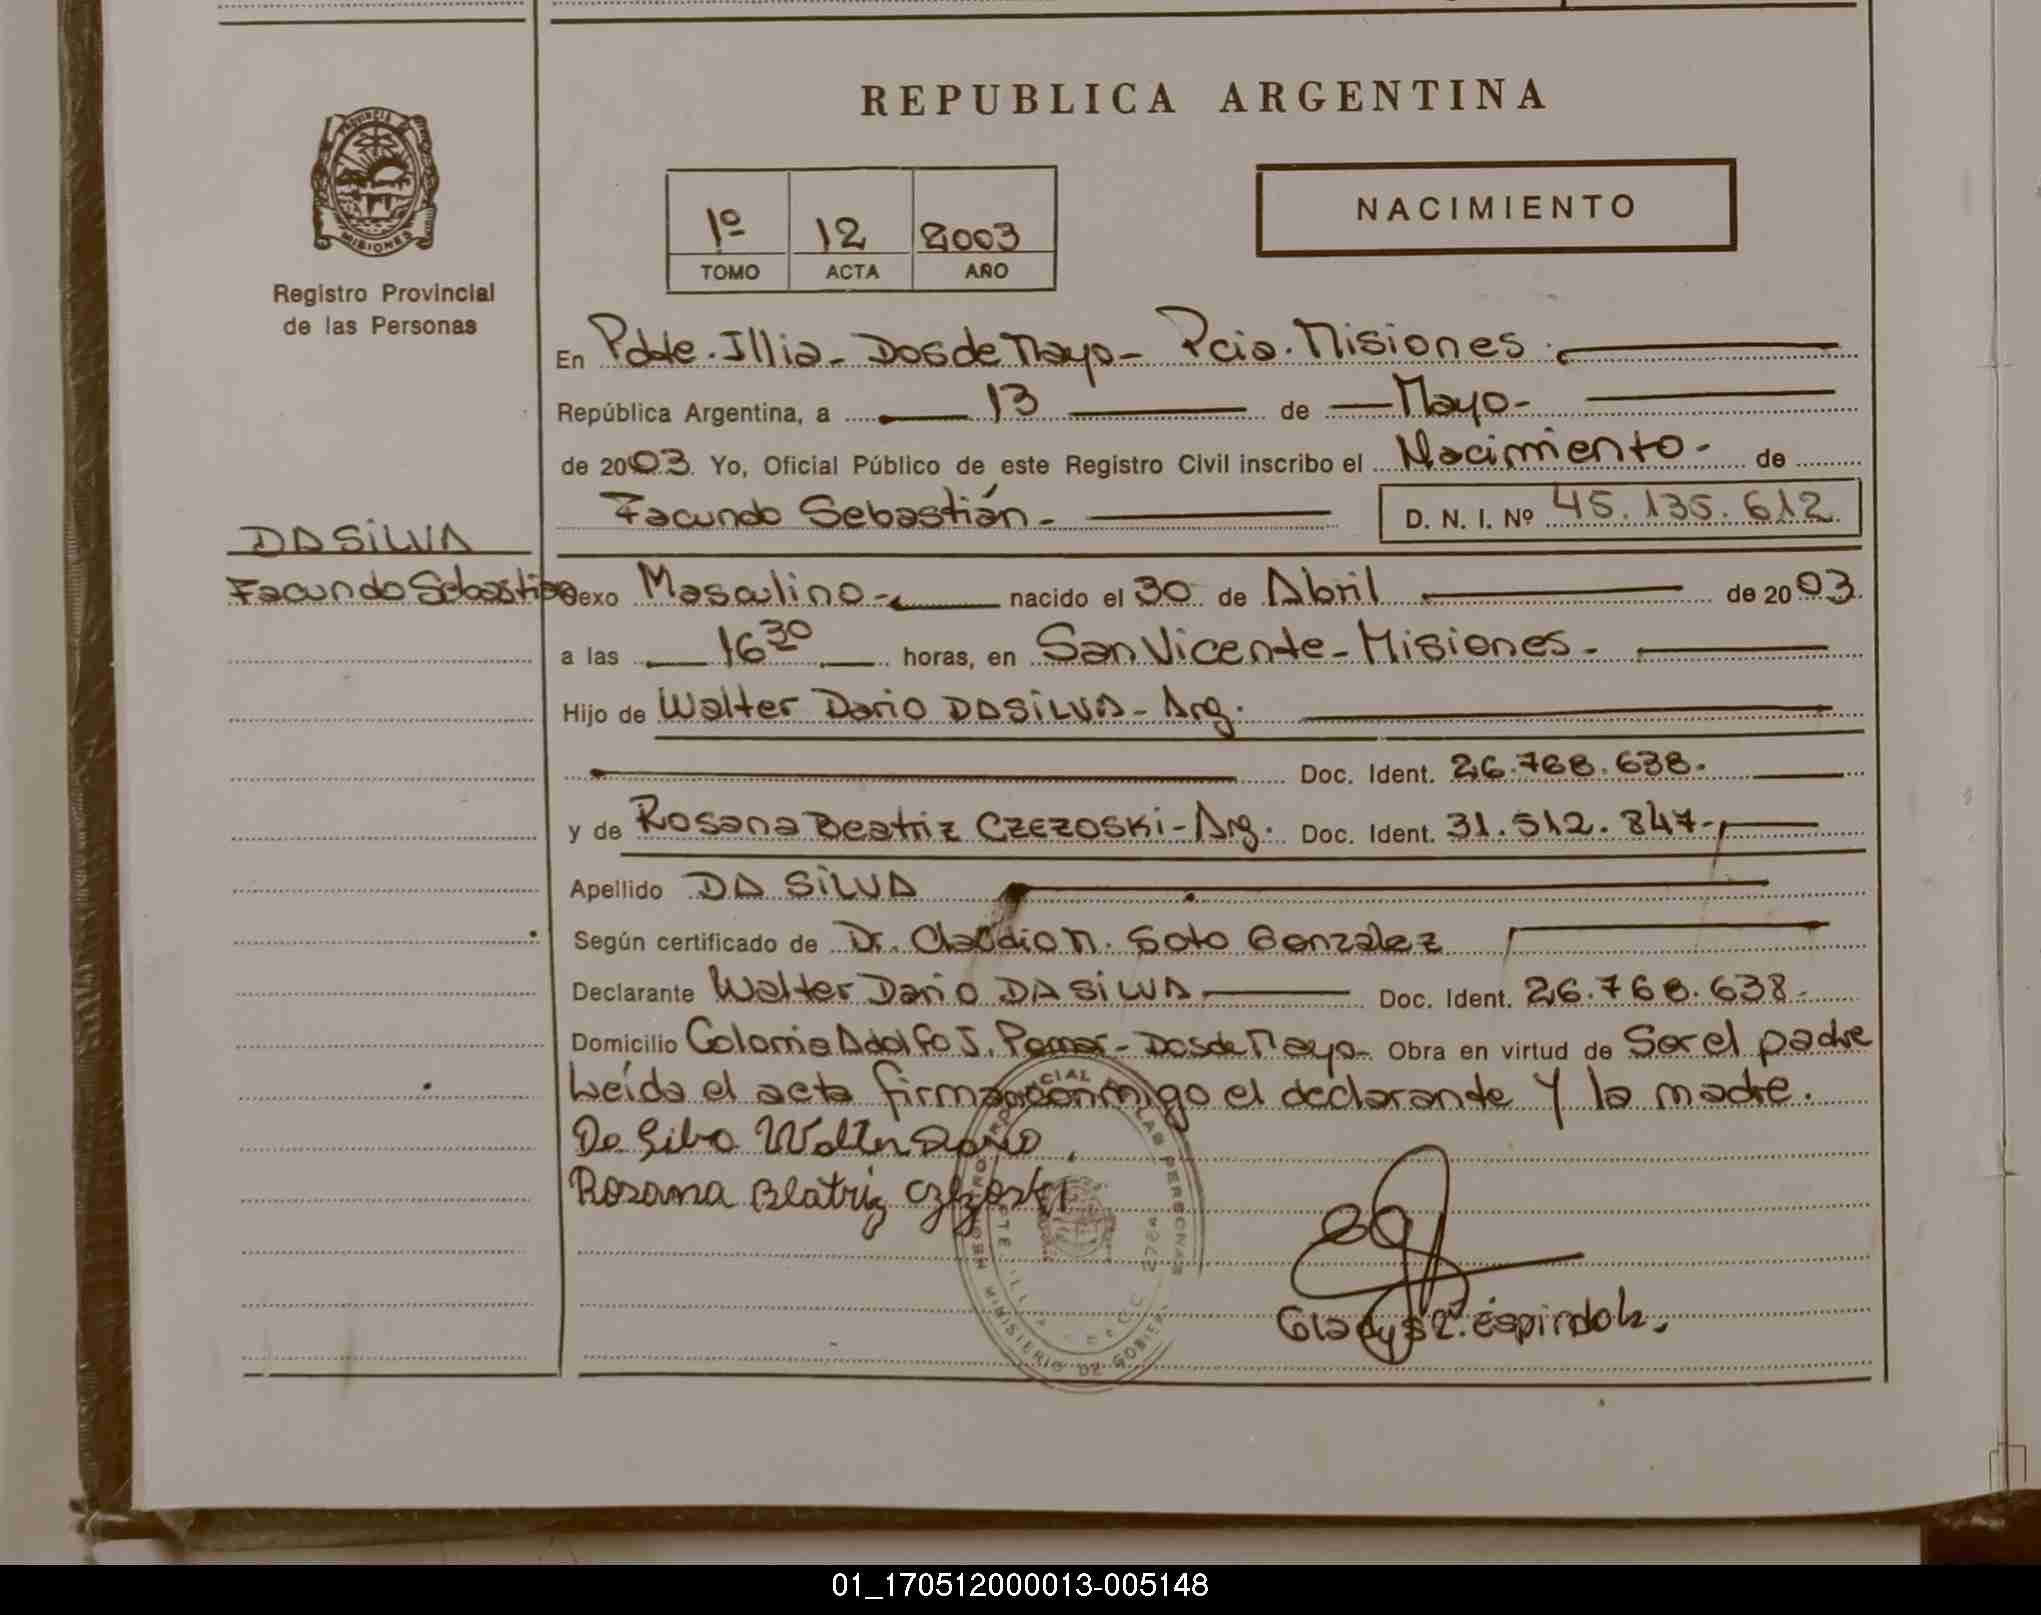 REPUBLICA ARGENTINA
PROVINCIA DE
MISIONES
Registro Provincial
de las Personas
1º 12 2003
TOMO ACTA AÑO
NACIMIENTO
En Pdte. Illia - Dos de Mayo - Pcia. Misiones
República Argentina, a 13 de Mayo-
de 2003. Yo, Oficial Público de este Registro Civil inscribo el Nacimiento- de
Facundo Sebastián- D. N. I. Nº 45.135.612
DA SILVA
Facundo Sebastian
Sexo Masculino- nacido el 30 de Abril de 2003.
a las 16 30 horas, en San Vicente - Misiones-
Hijo de Walter Dario DA SILVA - Arg.
Doc. Ident. 26.768.638.
y de Rosana Beatriz CZEZOSKI - Arg. Doc. Ident. 31.512.847-
Apellido DA SILVA
Según certificado de Dr. Claudio M. Soto Gonzalez
Declarante Walter Dario DA SILVA Doc. Ident. 26.768.638-
Domicilio Colonia Adolfo J. Pomar - Dos de Mayo- Obra en virtud de Ser el padre
Leída el acta firman conmigo el declarante y la madre.
Da Silva Walter Dario
Rosana Beatriz Czezoski
LAS PERSONAS
MINISTERIO DE GOBIER
Gladys E. Espindola.
01_170512000013-005148